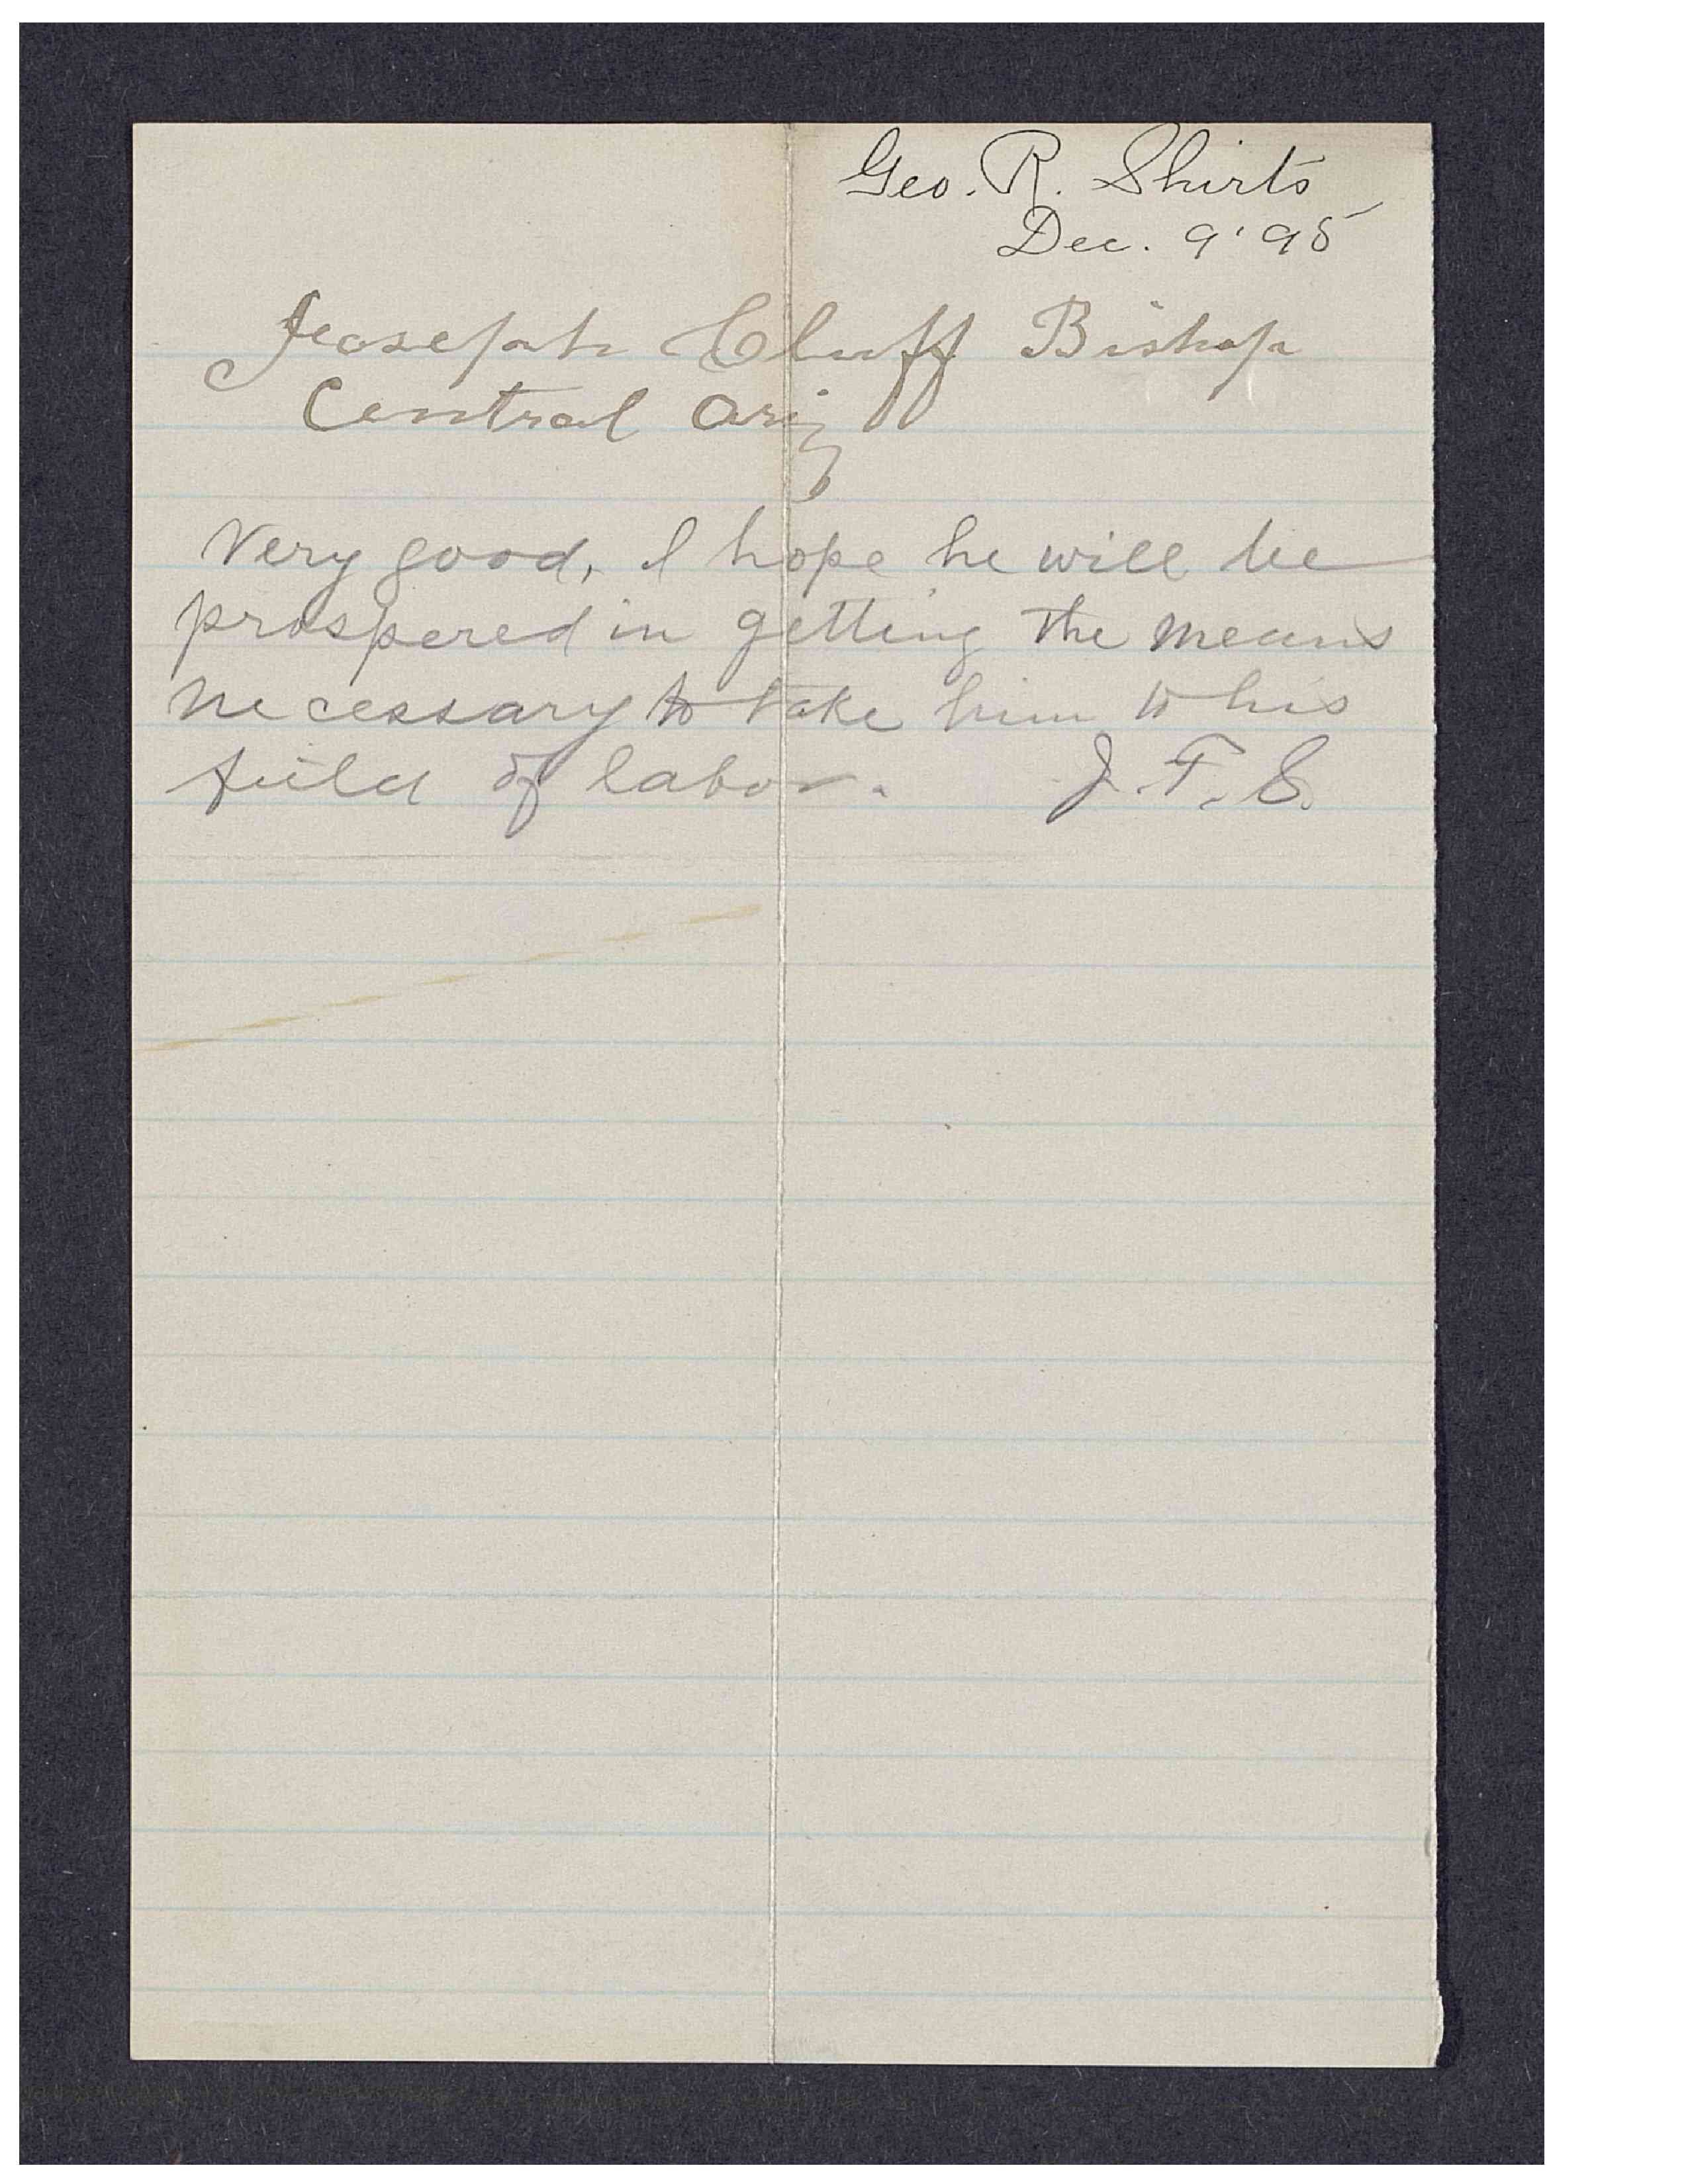 Geo. R. Shirts
Dec. 9' 95
Joseph Cluff Bishop
Central Ariz
Very good, I hope he will be
prospered in getting the means
necessary to take him to his
field of labor. J. F. S.